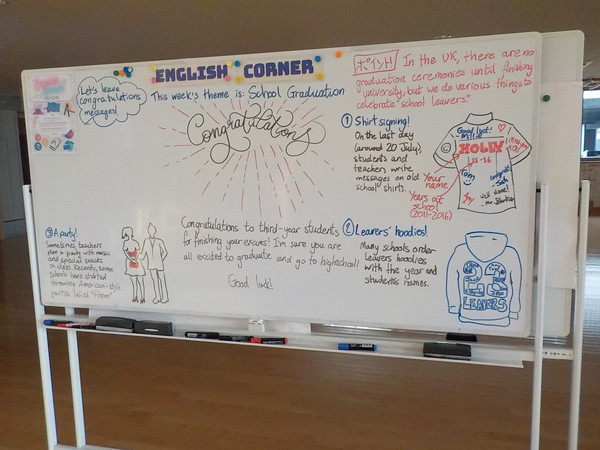 ENGLISH CORNER
This week's theme is: School Graduation
Let's leave
congratulations
messages!
Congratulations
ポイント In the UK, there are no
graduation ceremonies until finishing
University, but we do various things to
celebrate "school leavers"
① Shirt signing!
On the last day
(around 20 July),
students and
teachers write
messages on old
school shirts.
Your
name
Years at
school
(2011-2016)
Good luck!
HOLLY
11-16
Tom
well done!
② Leavers' hoodies!
Many schools order
Leavers hoodies
with the year and
students names.
LEAVERS
Congratulations to third-year students
for finishing your exams! I'm sure you are
all excited to graduate and go to highschool!
Good luck!
③ A party!
Sometimes, teachers
plan a party with music
and special snacks
in class. Recently, some
schools have started
throwing American-style
parties called "Prom"